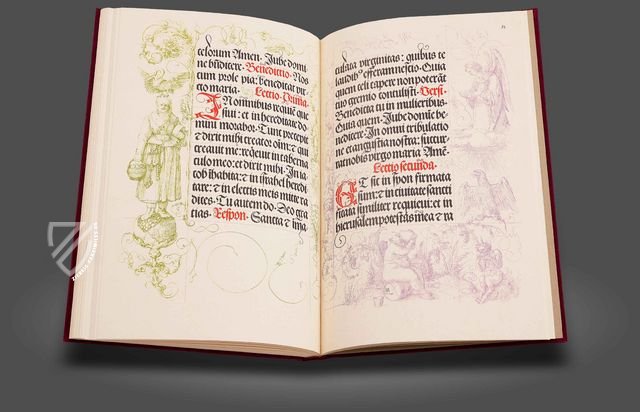 celorum Amen · Jube domi
ne bñdicere · Benedictio · Nos
cum prole pia: benedicat vir
go maria · Lectio · Prima ·
IN omnibus requiē que
siui: et in hereditate do
mini morabor · Tunc precepit
et dixit michi creator oīm: et qui
creauit me: requieuit in taberna
culo meo: et dixit michi · In ia
cob īhabita: et in israhel heredi
tare: et in electis meis mitte ra
dices · Tu autem do · Deo gra
tias · Respon · Sancta et īma
culata virginitas: quibus te
laudibꝰ efferam nescio · Quia
quem celi capere non poterāt
tuo gremio contulisti · Versi ·
Benedicta tu in mulieribus ·
Quia quem · Jube domīe be
nedicere · In omni tribulatio
ne et angustia nostra: succur
rat nobis virgo maria Amē ·
Lectio secūda ·
ET sic in syon firmata
sum: et in ciuitate sancti
ficata similiter requieui: et in
hierusalem potestas mea et ra